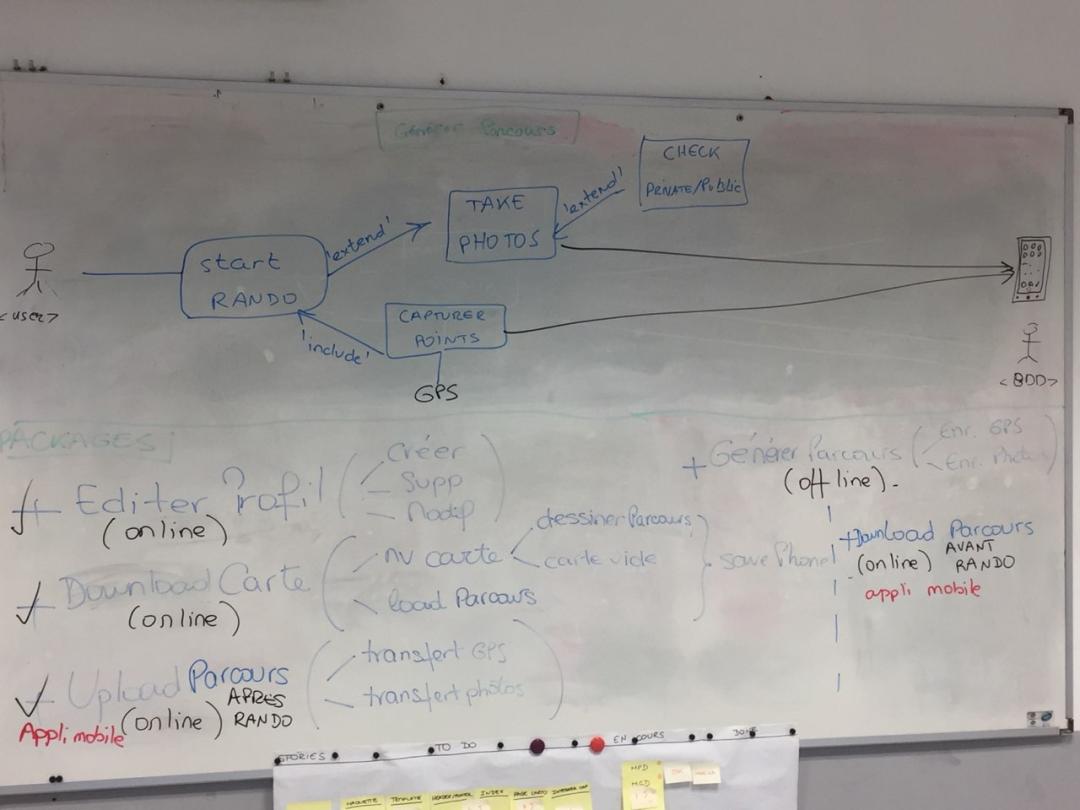 Générer Parcours
CHECK
PRIVATE/Public
'extend'
TAKE
PHOTOS
'extend'
start
RANDO
<USER>
CAPTURER
POINTS
'include'
GPS
<BDD>
PACKAGES
+ Editer Profil
(online)
Créer
Supp
Modif
+ Download Carte
(online)
nv carte
dessiner Parcours
carte vide
load Parcours
save Phone
Upload Parcours
(online)
APRES
RANDO
Appli mobile
transfert GPS
transfert photos
+ Générer Parcours
(offline).
Enr. GPS
Enr. Photo
+Download Parcours
(online)
AVANT
RANDO
appli mobile
STORIES
TO DO
EN COURS
DONE
MAQUETTE
TEMPLATE
INDEX
MPD
MCD